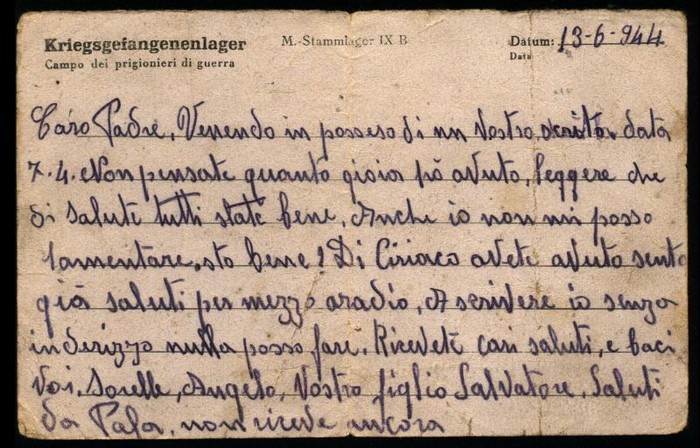 Kriegsgefangenenlager
M.-Stammlager IX B
Datum: 13-6-944
Campo dei prigionieri di guerra
Data
Caro Padre, Venendo in posseso di un Vostro scritto, data
7.4. Non pensate quanto gioia hò avuto, leggere che
di salute tutti state bene, Anche io non mi posso
lamentare, sto bene! Di Ciriaco avete avuto sento
già saluti per mezzo aradio, A scrivere io senza
inderizzo nulla posso fare. Ricevete cari saluti, e baci
Voi. Sorelle, Angelo, Vostro figlio Salvatore, Saluti
da non riceve ancora